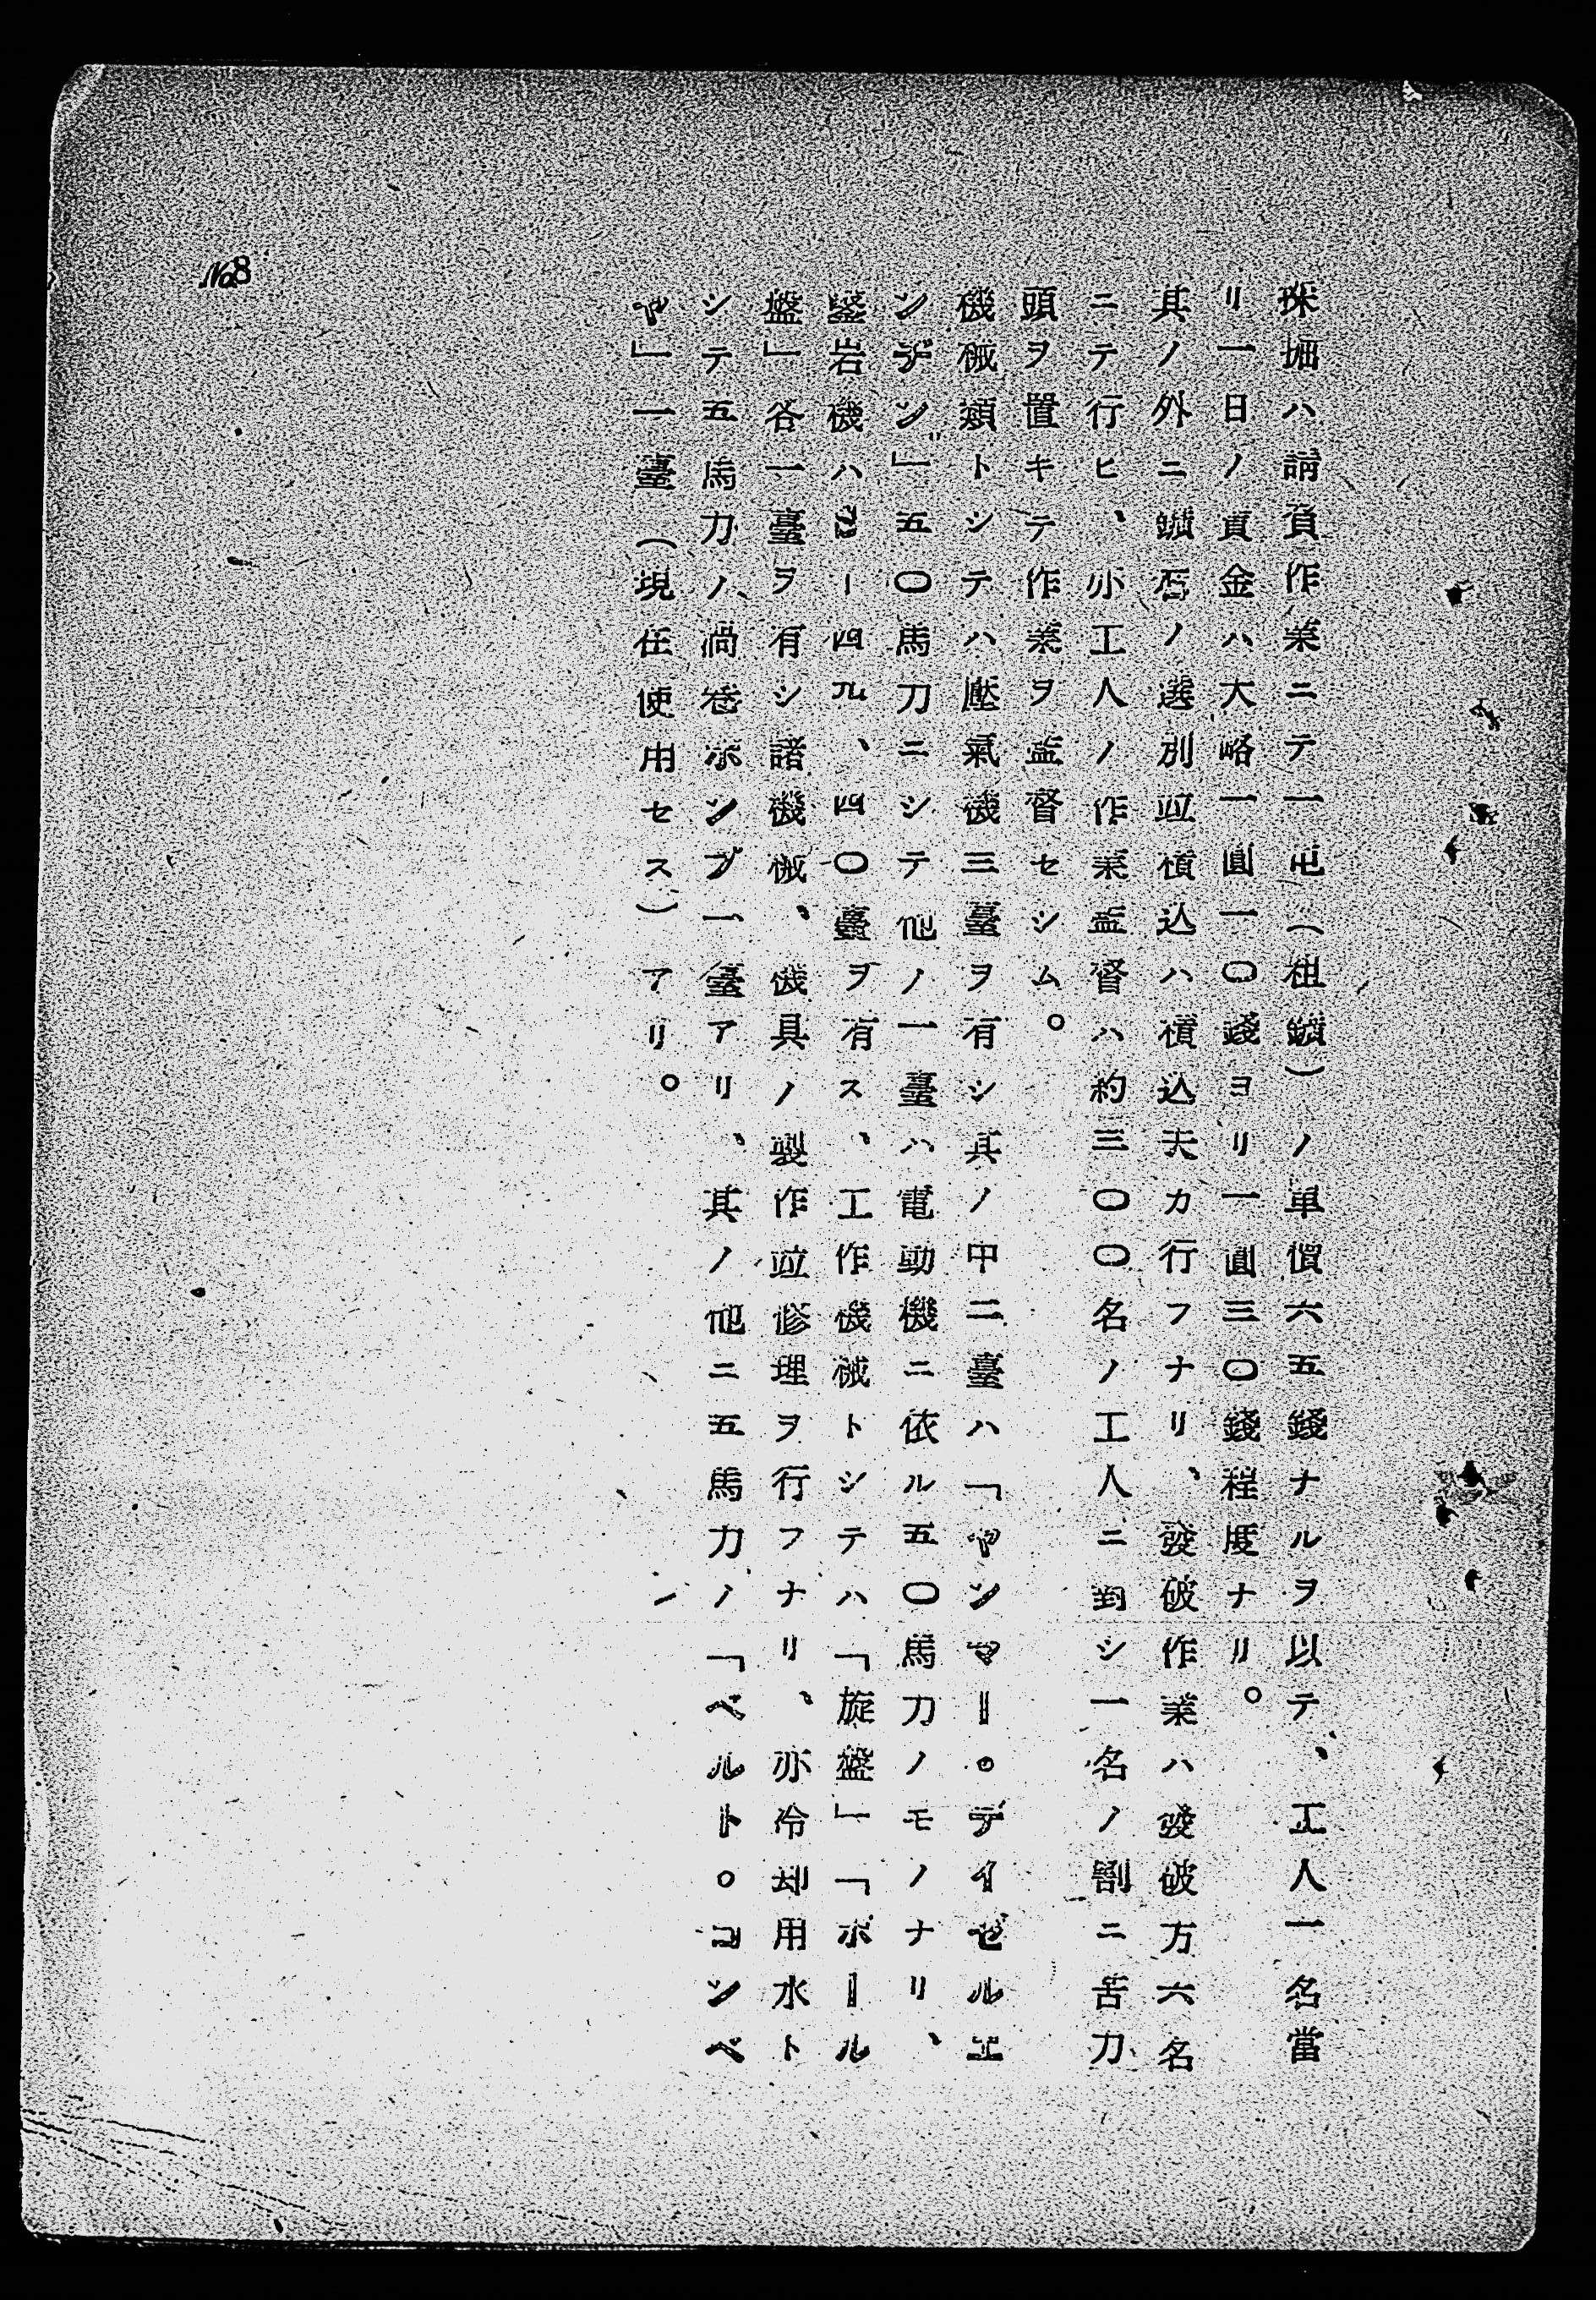 採掘ハ請負作業ニテ一屯（粗鑛）ノ単價六五錢ナルヲ以テ、工人一名當
リ一日ノ賃金ハ大略一圓一〇錢ヨリ一圓三〇錢程度ナリ。
其ノ外ニ鑛石ノ選別竝積込ハ積込夫カ行フナリ、發破作業ハ發破方六名
ニテ行ヒ、亦工人ノ作業監督ハ約三〇〇名ノ工人ニ對シ一名ノ割ニ苦力
頭ヲ置キテ作業ヲ監督セシム。
機械類トシテハ壓氣機三臺ヲ有シ其ノ中二臺ハ「ヤンマー。デイゼルエ
ンヂン」五〇馬力ニシテ他ノ一臺ハ電動機ニ依ル五〇馬力ノモノナリ、
鑿岩機ハ ー四九、四〇臺ヲ有ス、工作機械トシテハ「旋盤」「ボール
盤」各一臺ヲ有シ諸機械、機具ノ製作竝修理ヲ行フナリ、亦冷却用水ト
シテ五馬力ノ渦卷ポンプ一臺アリ、其ノ他ニ五馬力ノ「ベルト。コンベ
ヤ」一臺（現在使用セス）アリ。
No8